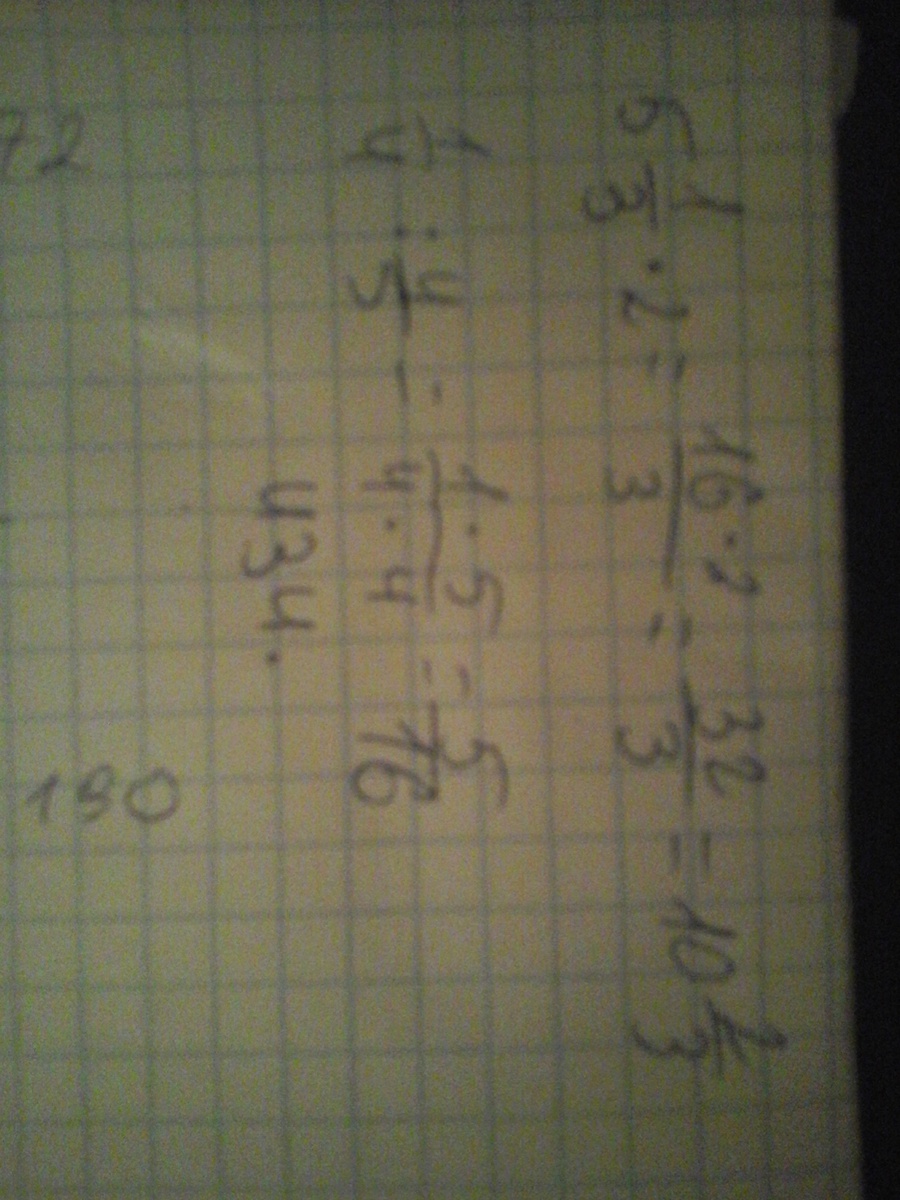 5 1/3 · 2 = 16·2/3 = 32/3 = 10 2/3
1/4 : 4/5 = 1·5/4·4 = 5/16
434.
190
72